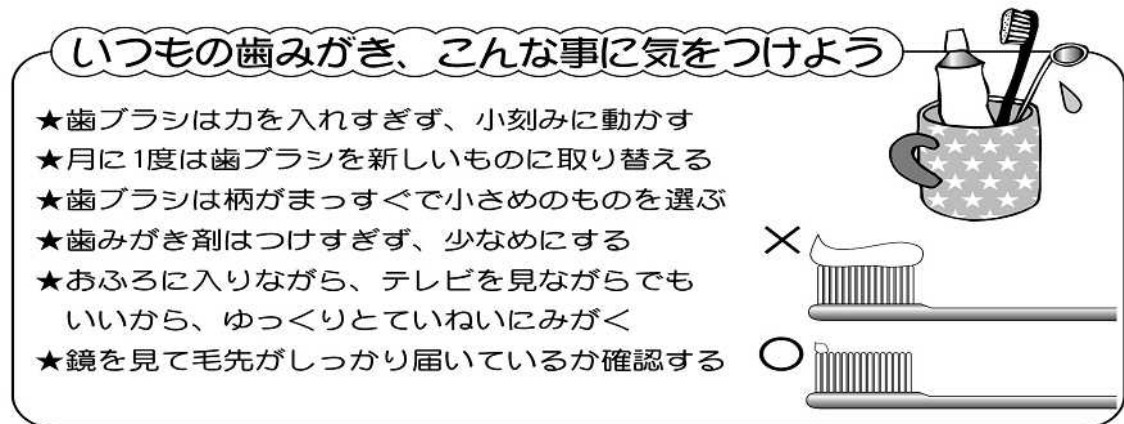 いつもの歯みがき、こんな事に気をつけよう
★歯ブラシは力を入れすぎず、小刻みに動かす
★月に1度は歯ブラシを新しいものに取り替える
★歯ブラシは柄がまっすぐで小さめのものを選ぶ
★歯みがき剤はつけすぎず、少なめにする
★おふろに入りながら、テレビを見ながらでも
いいから、ゆっくりとていねいにみがく
★鏡を見て毛先がしっかり届いているか確認する